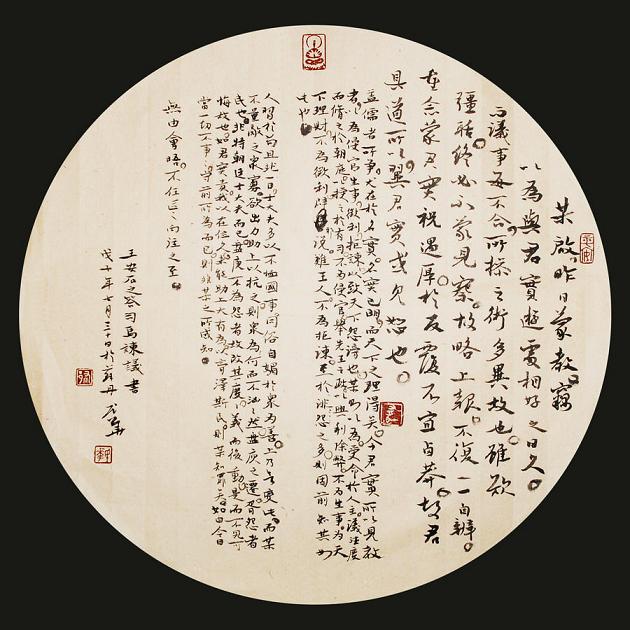 某啟昨日蒙教竊
以為與君實遊處相好之日久
而議事每不合所操之術多異故也雖欲
彊聒終必不蒙見察故略上報不復一一自辨
重念蒙君實視遇厚於反覆不宜鹵莽故君
具道所以冀君實或見恕也
蓋儒者所爭尤在於名實名實已明而天下之理得矣今君實所以見教
者以為侵官生事徵利拒諫以致天下怨謗也某則以為受命於人主議法度
而脩之於朝庭授之於有司不為侵官舉先王之政以興利除弊不為生事為天
下理財不為徵利闢邪說難壬人不為拒諫至於誹怨之多則固前知其如
此也
人習於苟且非一日士大夫多以不恤國事同俗自媚於眾為善上乃欲變此而某
不量敵之眾寡欲出力助上以抗之則眾為何而不洶洶然盤庚之遷胥怨者
民也非特朝廷士大夫而已盤庚不為怨者故改其度度義而後動是而不見可
悔故也如君實責我以在位久未能助上大有為以膏澤斯民則某知罪矣如曰今日
當一切不事事守前所為而已則非某之所敢知
無由會晤不任區區向往之至
王安石之答司馬諫議書
年七月三十日於